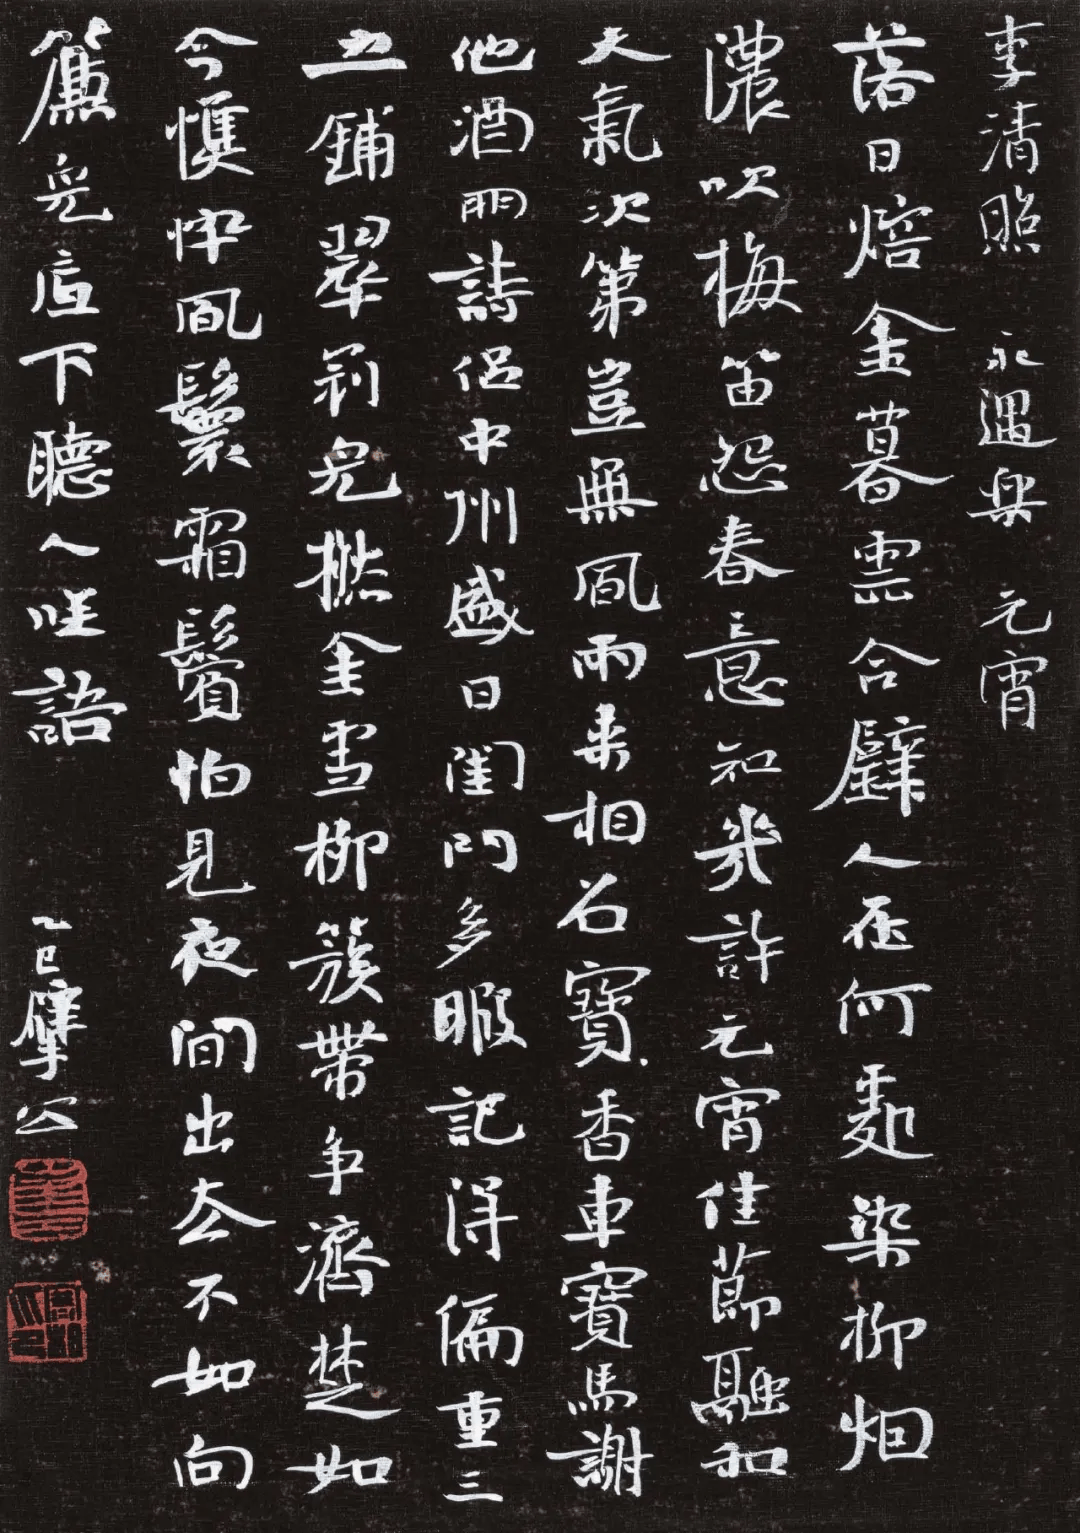 李清照 永遇樂 元宵
落日熔金暮雲合璧人在何處染柳烟
濃吹梅笛怨春意知幾許元宵佳節融和
天氣次第豈無風雨来相召寶香車寶馬謝
他酒朋詩侶中州盛日閨門多暇記得偏重三
五鋪翠冠兒撚金雪柳簇帶争濟楚如
今憔悴風鬟霜鬢怕見夜間出去不如向
簾兒底下聽人笑語
乙巳擘公